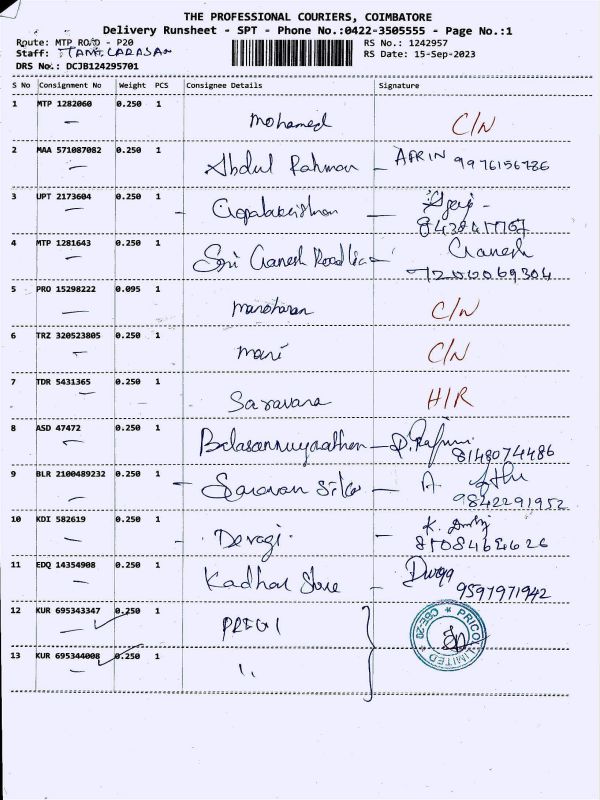 THE PROFESSIONAL COURIERS, COIMBATORE
Delivery Runsheet - SPT - Phone No.:0422-3505555 - Page No.:1
Route: MTP ROAD - P20
RS No.: 1242957
Staff:
RS Date: 15-Sep-2023
DRS No.: DCJB124295701
S No Consignment No Weight PCS Consignee Details Signature
1 MTP 1282060 0.250 1
Mohamed C/N
2 MAA 571087082 0.250 1
Abdul Rahman - AFRIN 9976156786
3 UPT 2173604 0.250 1
- Gopalakrishnan -
4 MTP 1281643 0.250 1
Sri Ganesh - Ganesh
5 PRO 15298222 0.095 1
manoharan C/N
6 TRZ 320523805 0.250 1
mani C/N
7 TDR 5431365 0.250 1
Saravana H/R
8 ASD 47472 0.250 1
8148074486
9 BLR 2100489232 0.250 1
- Saravan - A
9842291952
10 KDI 582619 0.250 1
- K.
11 EDQ 14354908 0.250 1
Kadhar Store -
9597971942
12 KUR 695343347 0.250 1
PRICOL
PRICOL LIMITED * CBE-20 *
13 KUR 695344008 0.250 1